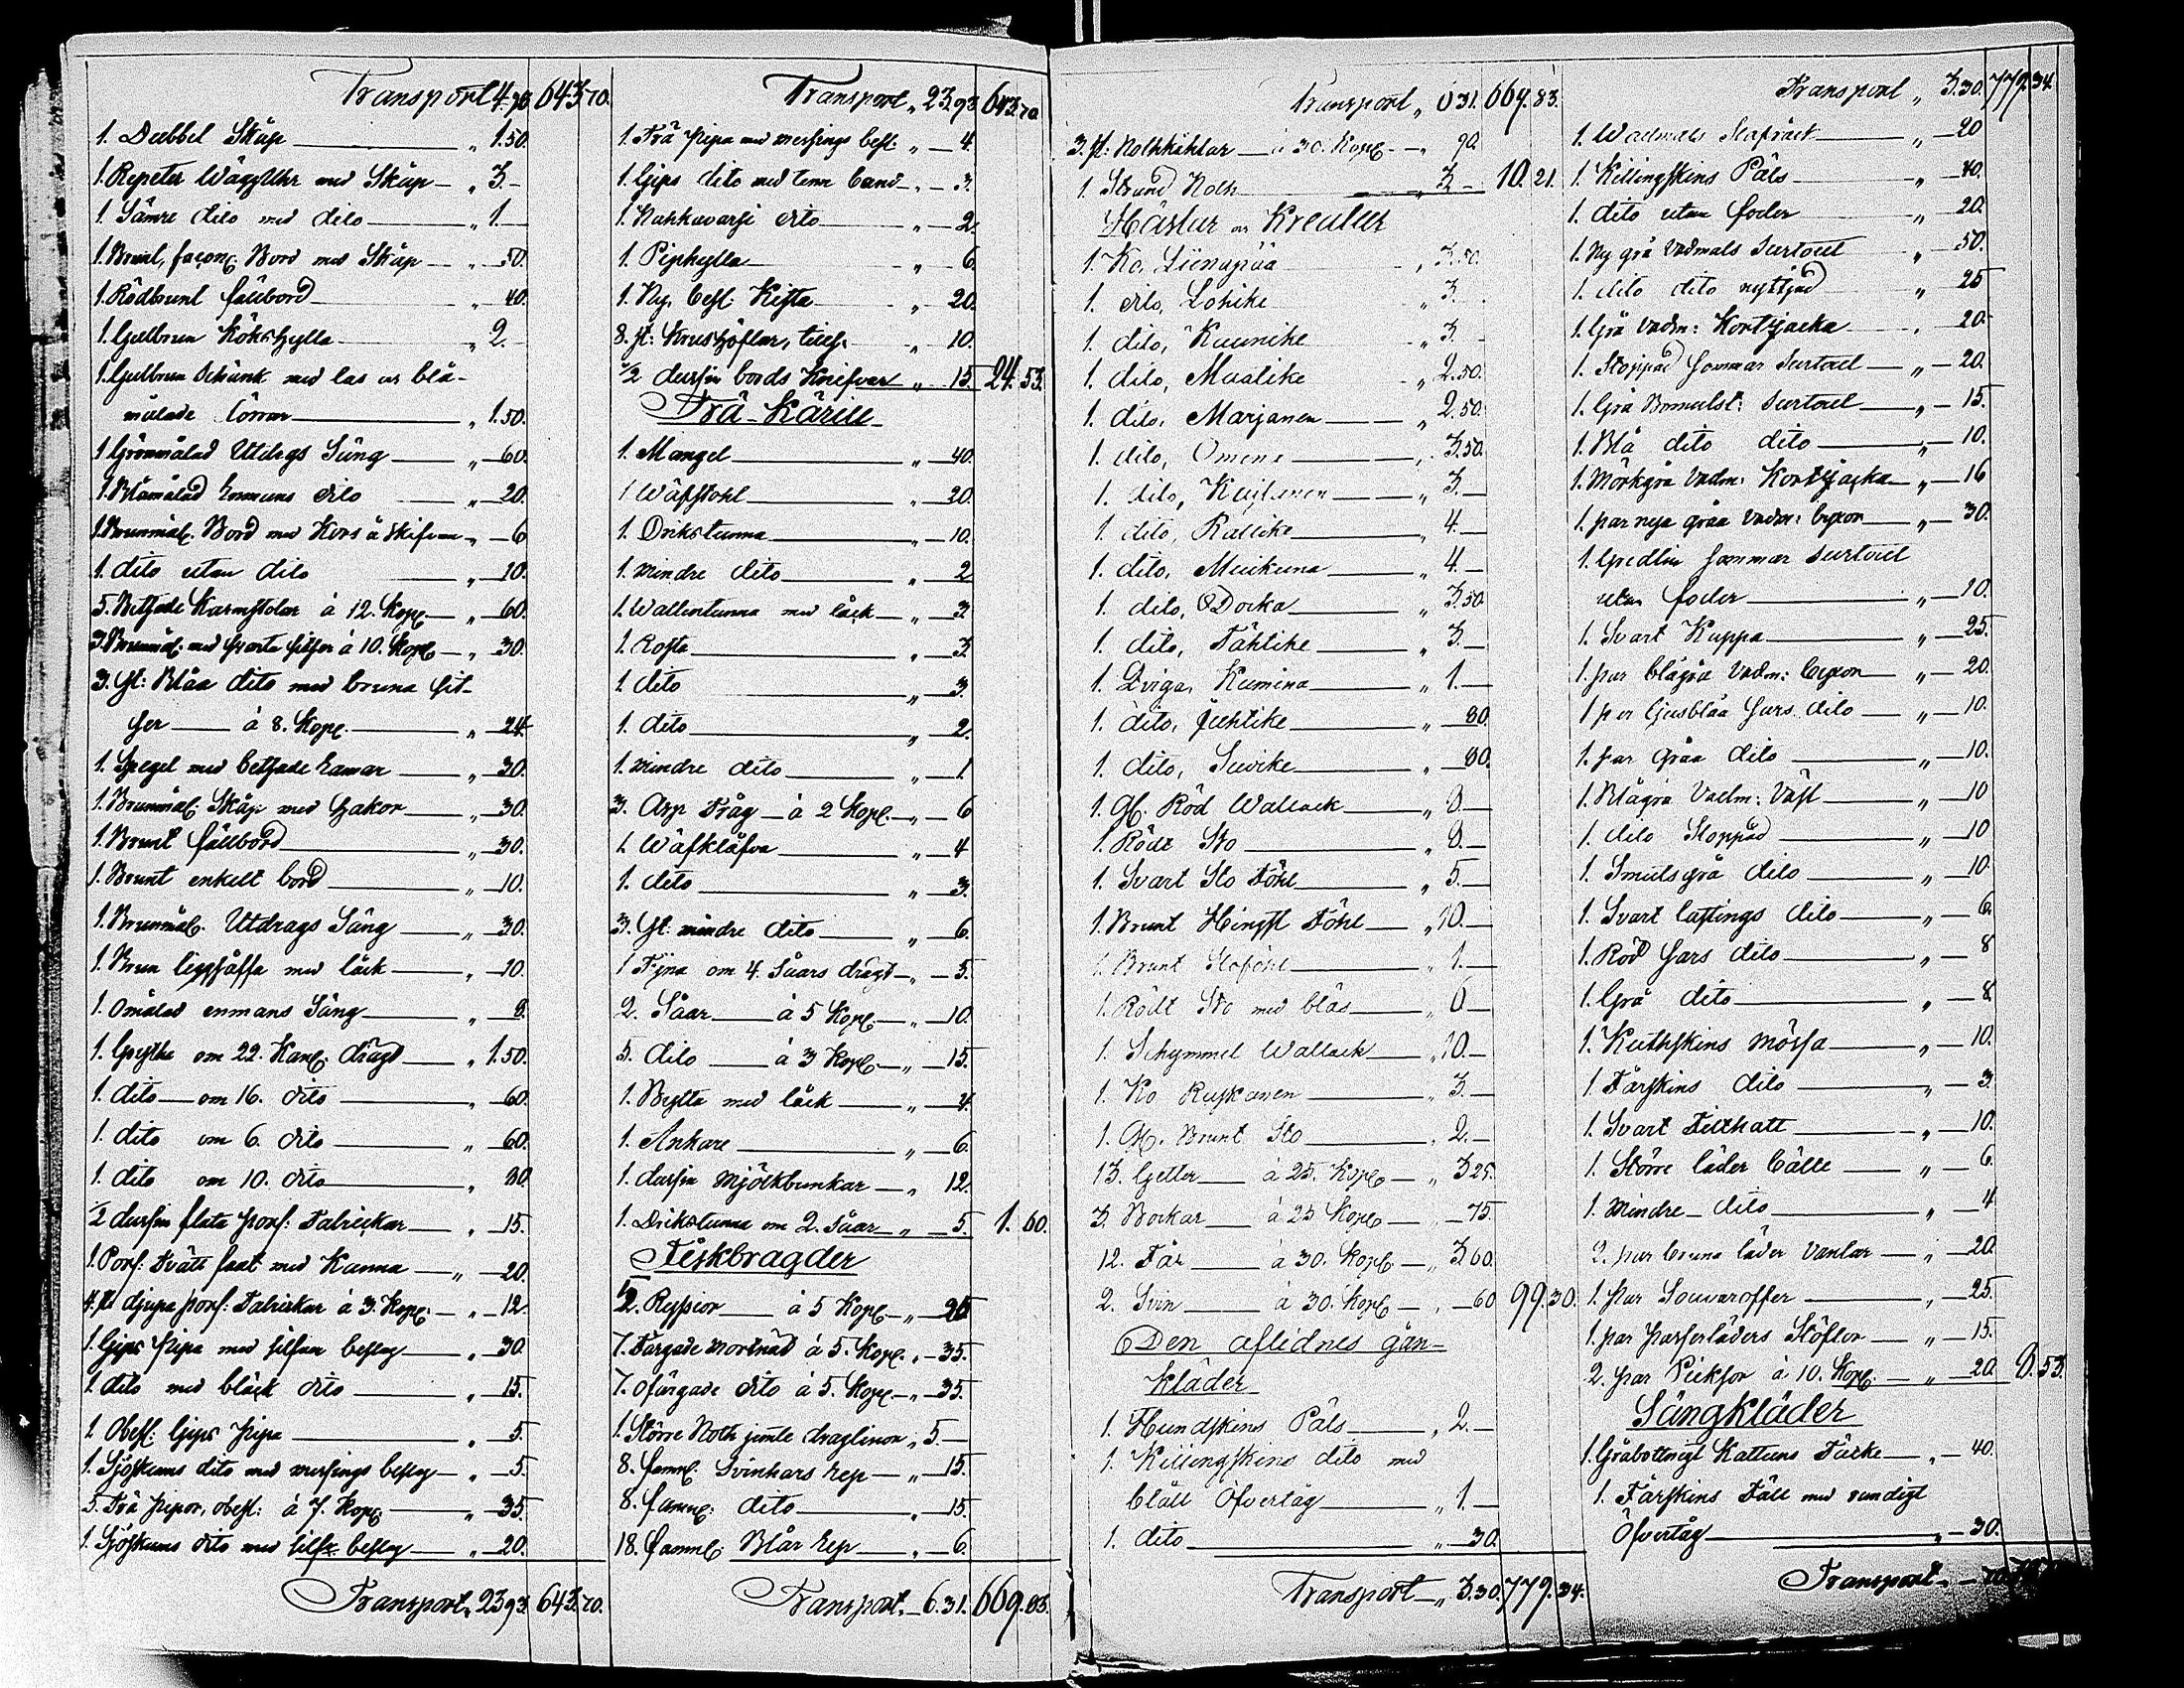 Transport 4.98 643.70.
1. Dubbel Skåp — „ 1.50.
1. Repeter Väggühr med Skåp — „ 3.—
1. Sämre dito med dito — „ 1.—
1. Brunt, façong. Bord med Skåp — „ 50.
1. Rödbrunt fällbord — „ 40.
1. Gulbrun Kökshylla — „ 2.—
1. Gulbrun Schänk med las och blå-
målade dörrar — „ 1.50.
1 Grönmålad Utdrags Säng — „ 60.
1. Blåmålad Enmans dito — „ 20.
1. Brunmål. Bord med Kors å skifvan „ — 6
1. dito utan dito — „ 10.
5. Betsade Karmstolar à 12. Kop. — „ 60.
3. Brunmål. med svarta sitsar à 10. Kop. — „ 30.
3. st: Blåa dito med bruna sit-
ser — à 8. Kop. — „ 24
1. Spegel med betsade ramar — „ 30.
1. Brunmål. Skåp med hakor — „ 30.
1. Brunt fällbord — „ 30.
1. Brunt enkelt bord — „ 10.
1. Brunmål. Utdrags Säng — „ 30.
1. Brun liggsåffa med låck — „ 10.
1. Omålad enmans Säng — „ 8.
1. Gryta om 22. Kann. drägt — „ 1.50.
1. dito — om 16. dito — „ 60.
1. dito om 6. dito — „ 60.
1. dito om 10. dito — „ 30
1/2 dussin flata porf: Talrickar — „ 15.
1. Porf. Tvätt faat med Kanna — „ 20.
4. st djupa porf: Talrickar à 3. Kop. — „ 12.
1. Gips Pipa med silfver beslag — „ 30.
1. dito med bläck dito — „ 15.
1. Obesl: Gips Pipa — „ 5.
1. Sjöskums dito med messings beslag — „ 5.
5. Trä Pipor, obesl: à 7. Kop. — „ 35
1. Sjöskums dito med silfr. beslag — „ 20.
Transport „ 23.93. 643.70.
Transport „ 23.93 643.70
1. Trä pipa med messings besl: „ — 4
1. Gips dito med tenn band — „ 3.
1. dito — „ 2.
1. Piphylla — „ 6.
1. Ny, besl. Kista — „ 20.
8. st: — „ 10.
1/2 dussin bords Knifvar „ 15. 24. 53.
Trä-Kärill
1. Mangel — „ 40.
1 Wäfstohl — „ 20.
1. Drikstunna — „ 10.
1. mindre dito — „ 2
1. Wattentunna med låck — „ 3.
1. Rosta — „ 3.
1. dito — „ 3.
1. dito — „ 2.
1. mindre dito — „ 1.
3. Asp Tråg — à 2 Kop. — „ 6
1. Wäfklåfva — „ 4
1. dito — „ 3.
3. St: mindre dito — „ 6.
1 Tÿna om 4. Såars drägt — „ 5.
2. Såar — à 5 Kop. — „ 10.
5. dito — à 3 Kop. — „ 15.
1. Bytta med låck — „ 4.
1. Ankare — „ 6.
1. dussin mjölkbunkar — „ 12.
1. Drikstunna om 2. Såar „ 5. 1. 60.
Fiskbragder
Ryssior — à 5 Kop. — „
7. Färgade mortnät à 5. Kop. „ — 35.
7. ofärgade dito à 5. Kop. — „ 35.
1. Större Noth jemte draglinor „ 5.—
8. famn. Svinhårs rep — „ 15.
8. famn. dito — „ 15.
18. famn. Blår rep — „ 6.
Transport. — 6.31. 669.83.
Transport „ 6 31. 669. 83.
3. st: Nothkählar — à 30. Kop. — „ 90.
1. Strand Noth — „ 3.— 10. 21.
Hästar och Kreatur
1. Ko, Liinapää — „ 3.50.
1. dito, Lohike — „ 3.
1. dito, Kuunike — „ 3.
1. dito, Maalike — „ 2.50.
1. dito, Marjanen — „ 2.50.
1. dito, Omena — „ 3.50.
1. dito, — „ 3.—
1. dito, Rällike — „ 4.—
1. dito, Muikuna — „ 4.—
1. dito, Docka — „ 3.50
1. dito, Tähtike — „ 3.—
1. Qviga, Kumina — „ 1.—
1. dito, Juhtike — „ 80.
1. dito, — „ 80.
1. Gl. Röd Wallack — „ 8.—
1. Rödt Sto — „ 8.—
1. Svart Sto Föhl — „ 5.—
1. Brunt Hingst Föhl — „ 10.—
1. Brunt Stoföhl — „ 1.—
1. Rödt Sto med bläs — „ 6—
1. Schymmel Wallack — „ 10.—
1. Ko Ruskanen — „ 3.—
1. Gl. Brunt Sto — „ 2.—
13. Getter — à 25. Kop. — „ 3 25.
3. Bockar — à 25 Kop. — „ 75.
12. Får — à 30. Kop. — „ 3.60.
2. Svin — à 30. Kop. — „ 60 99.30.
Den aflidnes gån-
kläder
1. Hundskins Päls — „ 2.—
1. Killingskins dito med
blått öfvertåg — „ 1.—
1. dito — „ 30.
Transport — „ 3.30. 779.34.
Transport „ 3.30. 779.34.
1. Wadmals — „ 20
1. Killingskins Päls — „ 40.
1. dito utan foder — „ 20.
1. Ny grå Vadmals Surtout — „ 50.
1. dito dito nyttjad — „ 25
1. Grå Vadm: Kortjacka — „ 20.
1. Stoppad Sommar Surtout — „ 20.
1. Grå Bomulst: Surtout — „ 15.
1. Blå dito dito — „ 10.
1. Mörkgrå Vadm: Kortjacka — „ 16
1. par nya gråa Vadm: byxor — „ 30.
1. Gredlin Sommar Surtout
utan foder — „ 10.
1. Svart Kappa — „ 25.
1. par blågrå Vadm: byxor — „ 20.
1 par ljusblåa Sars dito — „ 10.
1. par gråa dito — „ 10.
1. Blågrå Vadm: Väst — „ 10
1. dito Stoppad — „ 10
1. Smutsgrå dito — „ 10.
1. Svart lastings dito — „ 6.
1. Röd Sars dito — „ 8
1. Grå dito — „ 8.
1. Kuthskins mössa — „ 10.
1. Fårskins dito — „ 3.
1. Svart Filthatt — „ 10.
1. Större läder bälte — „ 6.
1. Mindre dito — „ 4
2. par bruna läder vantar — „ 20.
1. par Souvaroffer — „ 25.
1. par Stöflor — „ 15.
2. par Pickser à 10. Kop. — „ 20. 8.53.
Sängkläder
1. Gråbottnigt Kattuns Täcke — „ 40.
1. Fårskins Fäll med randigt
Öfvertåg — „ 30.
Transport —